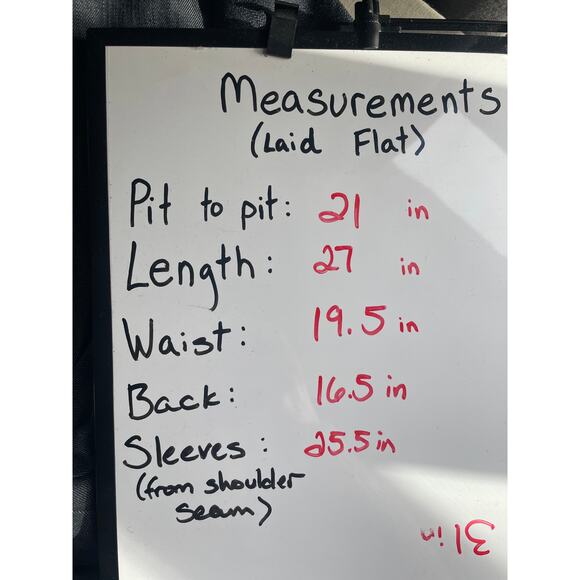 Measurements
(Laid Flat)
Pit to pit: 21 in
Length: 27 in
Waist: 19.5 in
Back: 16.5 in
Sleeves: 25.5 in
(from shoulder
seam)
31 in